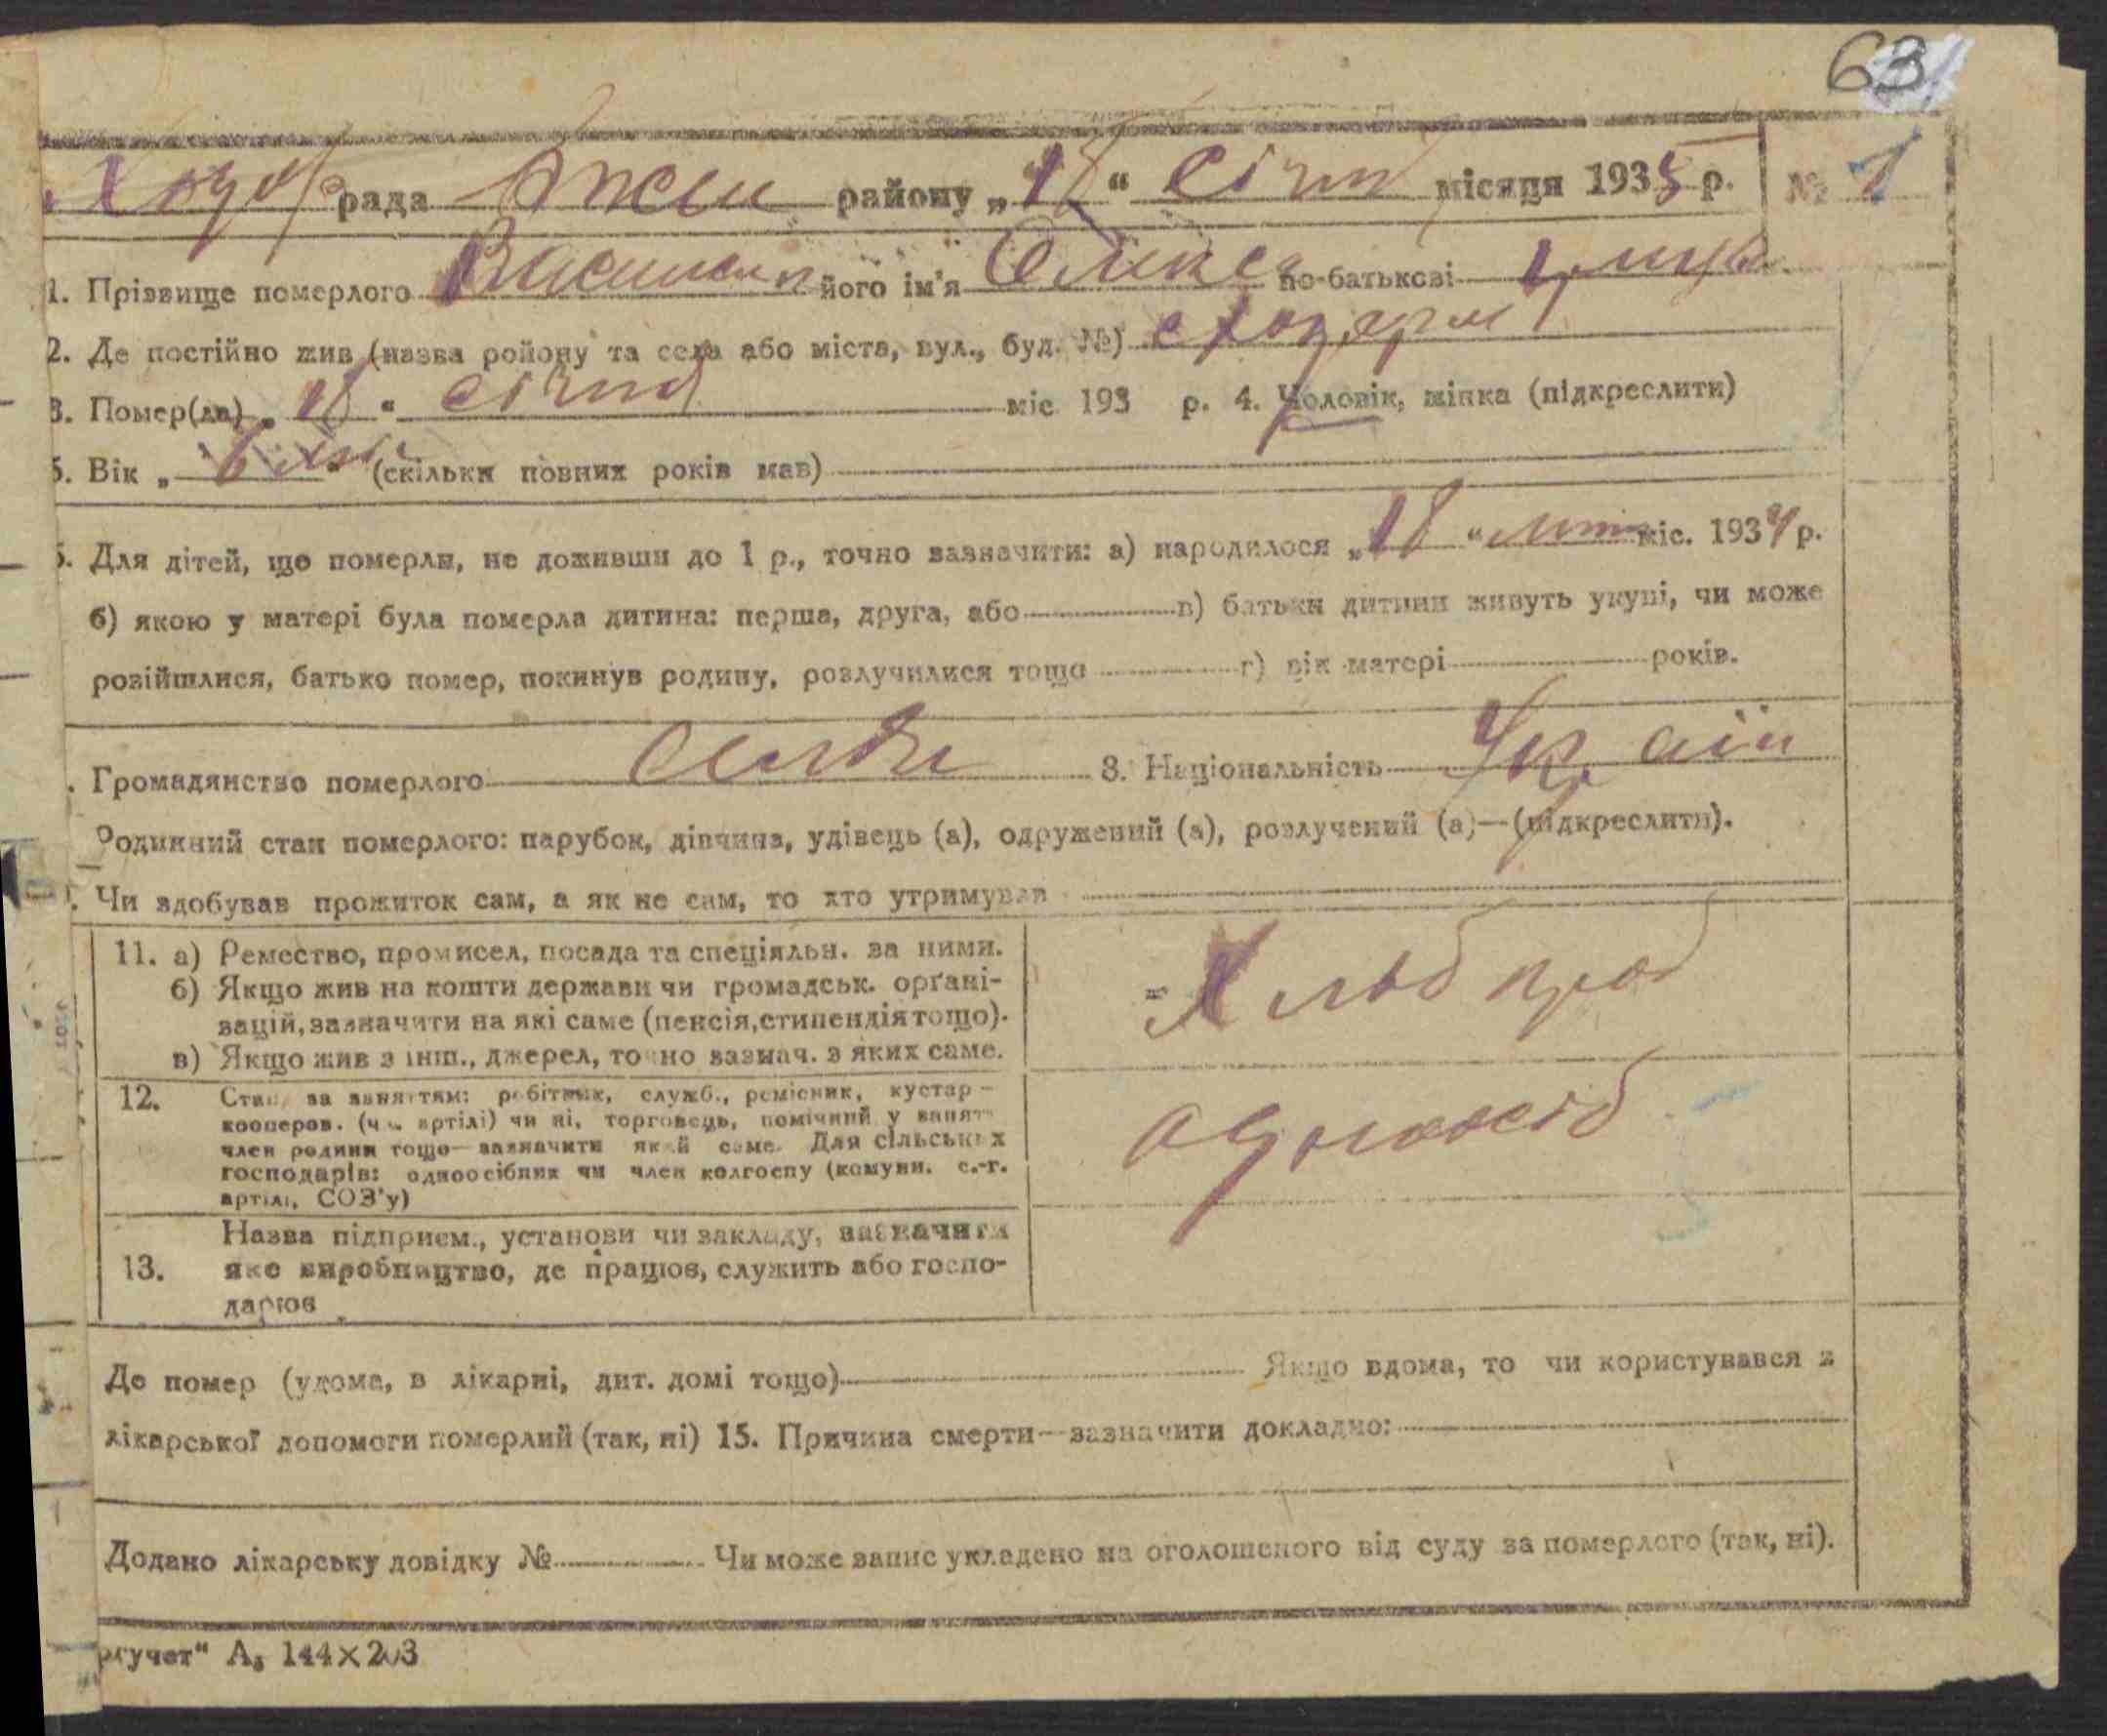 63
рада району „18“ січня місяця 1935 р. № 1
1. Прізвище померлого його ім'я Олекса по-батькові
2. Де постійно жив (назва ройону та села або міста, вул., буд. №)
3. Помер(ла) „18“ січня міс 193 р. 4. Чоловік, жінка (підкреслити)
5. Вік „ “ (скільки повних років мав)
Для дітей, що померли, не доживши до 1 р., точно зазначити: а) народилося „18“ міс. 1934 р.
б) якою у матері була померла дитина: перша, друга, або в) батьки дитини живуть укупі, чи може
розійшлися, батько помер, покинув родину, розлучилися тощо г) вік матері років.
Громадянство померлого 8. Національність Україн
Родинний стан померлого: парубок, дівчина, удівець (а), одружений (а), розлучений (а)—(підкреслити).
Чи здобував прожиток сам, а як не сам, то хто утримував
11. а) Ремество, промисел, посада та спеціяльн. за ними.
б) Якщо жив на кошти держави чи громадськ. орґані-
зацій, зазначити на які саме (пенсія, стипендія тощо).
в) Якщо жив з інш., джерел, точно зазнач. з яких саме.
Хлібороб
12. Стан за заняттям: робітник, служб., ремісник, кустар –
кооперов. (чл. артілі) чи ні, торговець, помічний у занят
член родини тощо—зазначити який саме. Для сільських
господарів: одноосібник чи член колгоспу (комуни. с.-г.
артілі, СОЗ'у)
одноосіб
13. Назва підприєм., установи чи закладу, зазначити
яке виробництво, де працює, служить або госпо-
дарює
Де помер (удома, в лікарні, дит. домі тощо) Якщо вдома, то чи користувався з
лікарської допомоги померлий (так, ні) 15. Причина смерти—зазначити докладно:
Додано лікарську довідку № Чи може запис укладено на оголошеного від суду за померлого (так, ні).
учет“ А₅ 144×203